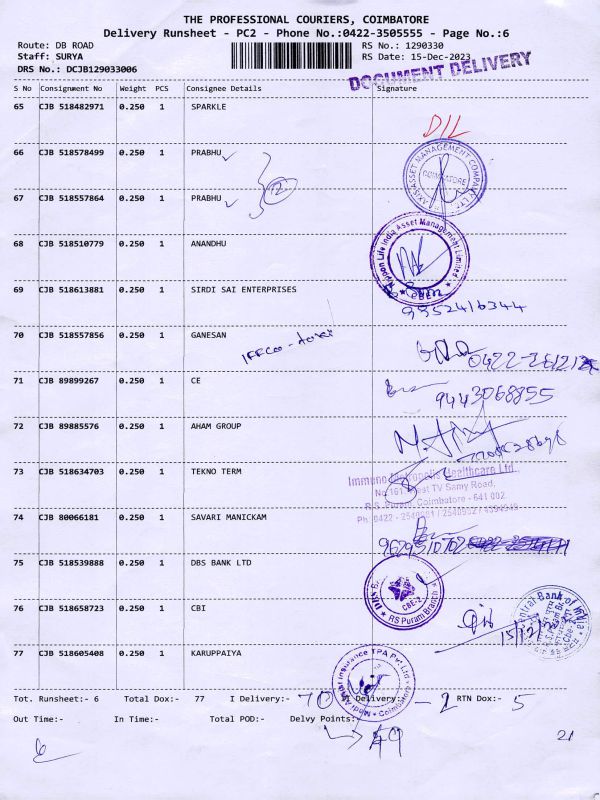 THE PROFESSIONAL COURIERS, COIMBATORE
Delivery Runsheet - PC2 - Phone No.:0422-3505555 - Page No.:6
Route: DB ROAD RS No.: 1290330
Staff: SURYA RS Date: 15-Dec-2023
DRS No.: DCJB129033006
DOCUMENT DELIVERY
S No Consignment No Weight PCS Consignee Details Signature
65 CJB 518482971 0.250 1 SPARKLE
DIL
66 CJB 518578499 0.250 1 PRABHU
ASSET MANAGEMENT COMPANY LTD
COIMBATORE
67 CJB 518557864 0.250 1 PRABHU
68 CJB 518510779 0.250 1 ANANDHU
Nippon Life India Asset Management Limited
69 CJB 518613881 0.250 1 SIRDI SAI ENTERPRISES
9952416344
70 CJB 518557856 0.250 1 GANESAN
IFFCO -
71 CJB 89899267 0.250 1 CE
9443068855
72 CJB 89885576 0.250 1 AHAM GROUP
73 CJB 518634703 0.250 1 TEKNO TERM
Healthcare Ltd.,
TV Samy Road,
R.S. Puram, Coimbatore - 641 002.
74 CJB 80066181 0.250 1 SAVARI MANICKAM
75 CJB 518539888 0.250 1 DBS BANK LTD
DBS
CBE-2
RS Puram Branch
76 CJB 518658723 0.250 1 CBI
Central Bank of India
77 CJB 518605408 0.250 1 KARUPPAIYA
Insurance TPA Pvt Ltd
Coimbatore
Tot. Runsheet:- 6 Total Dox:- 77 I Delivery:- 70 Delivery:- 2 RTN Dox:- 5
Out Time:- In Time:- Total POD:- Delvy Points:-
49
6
21